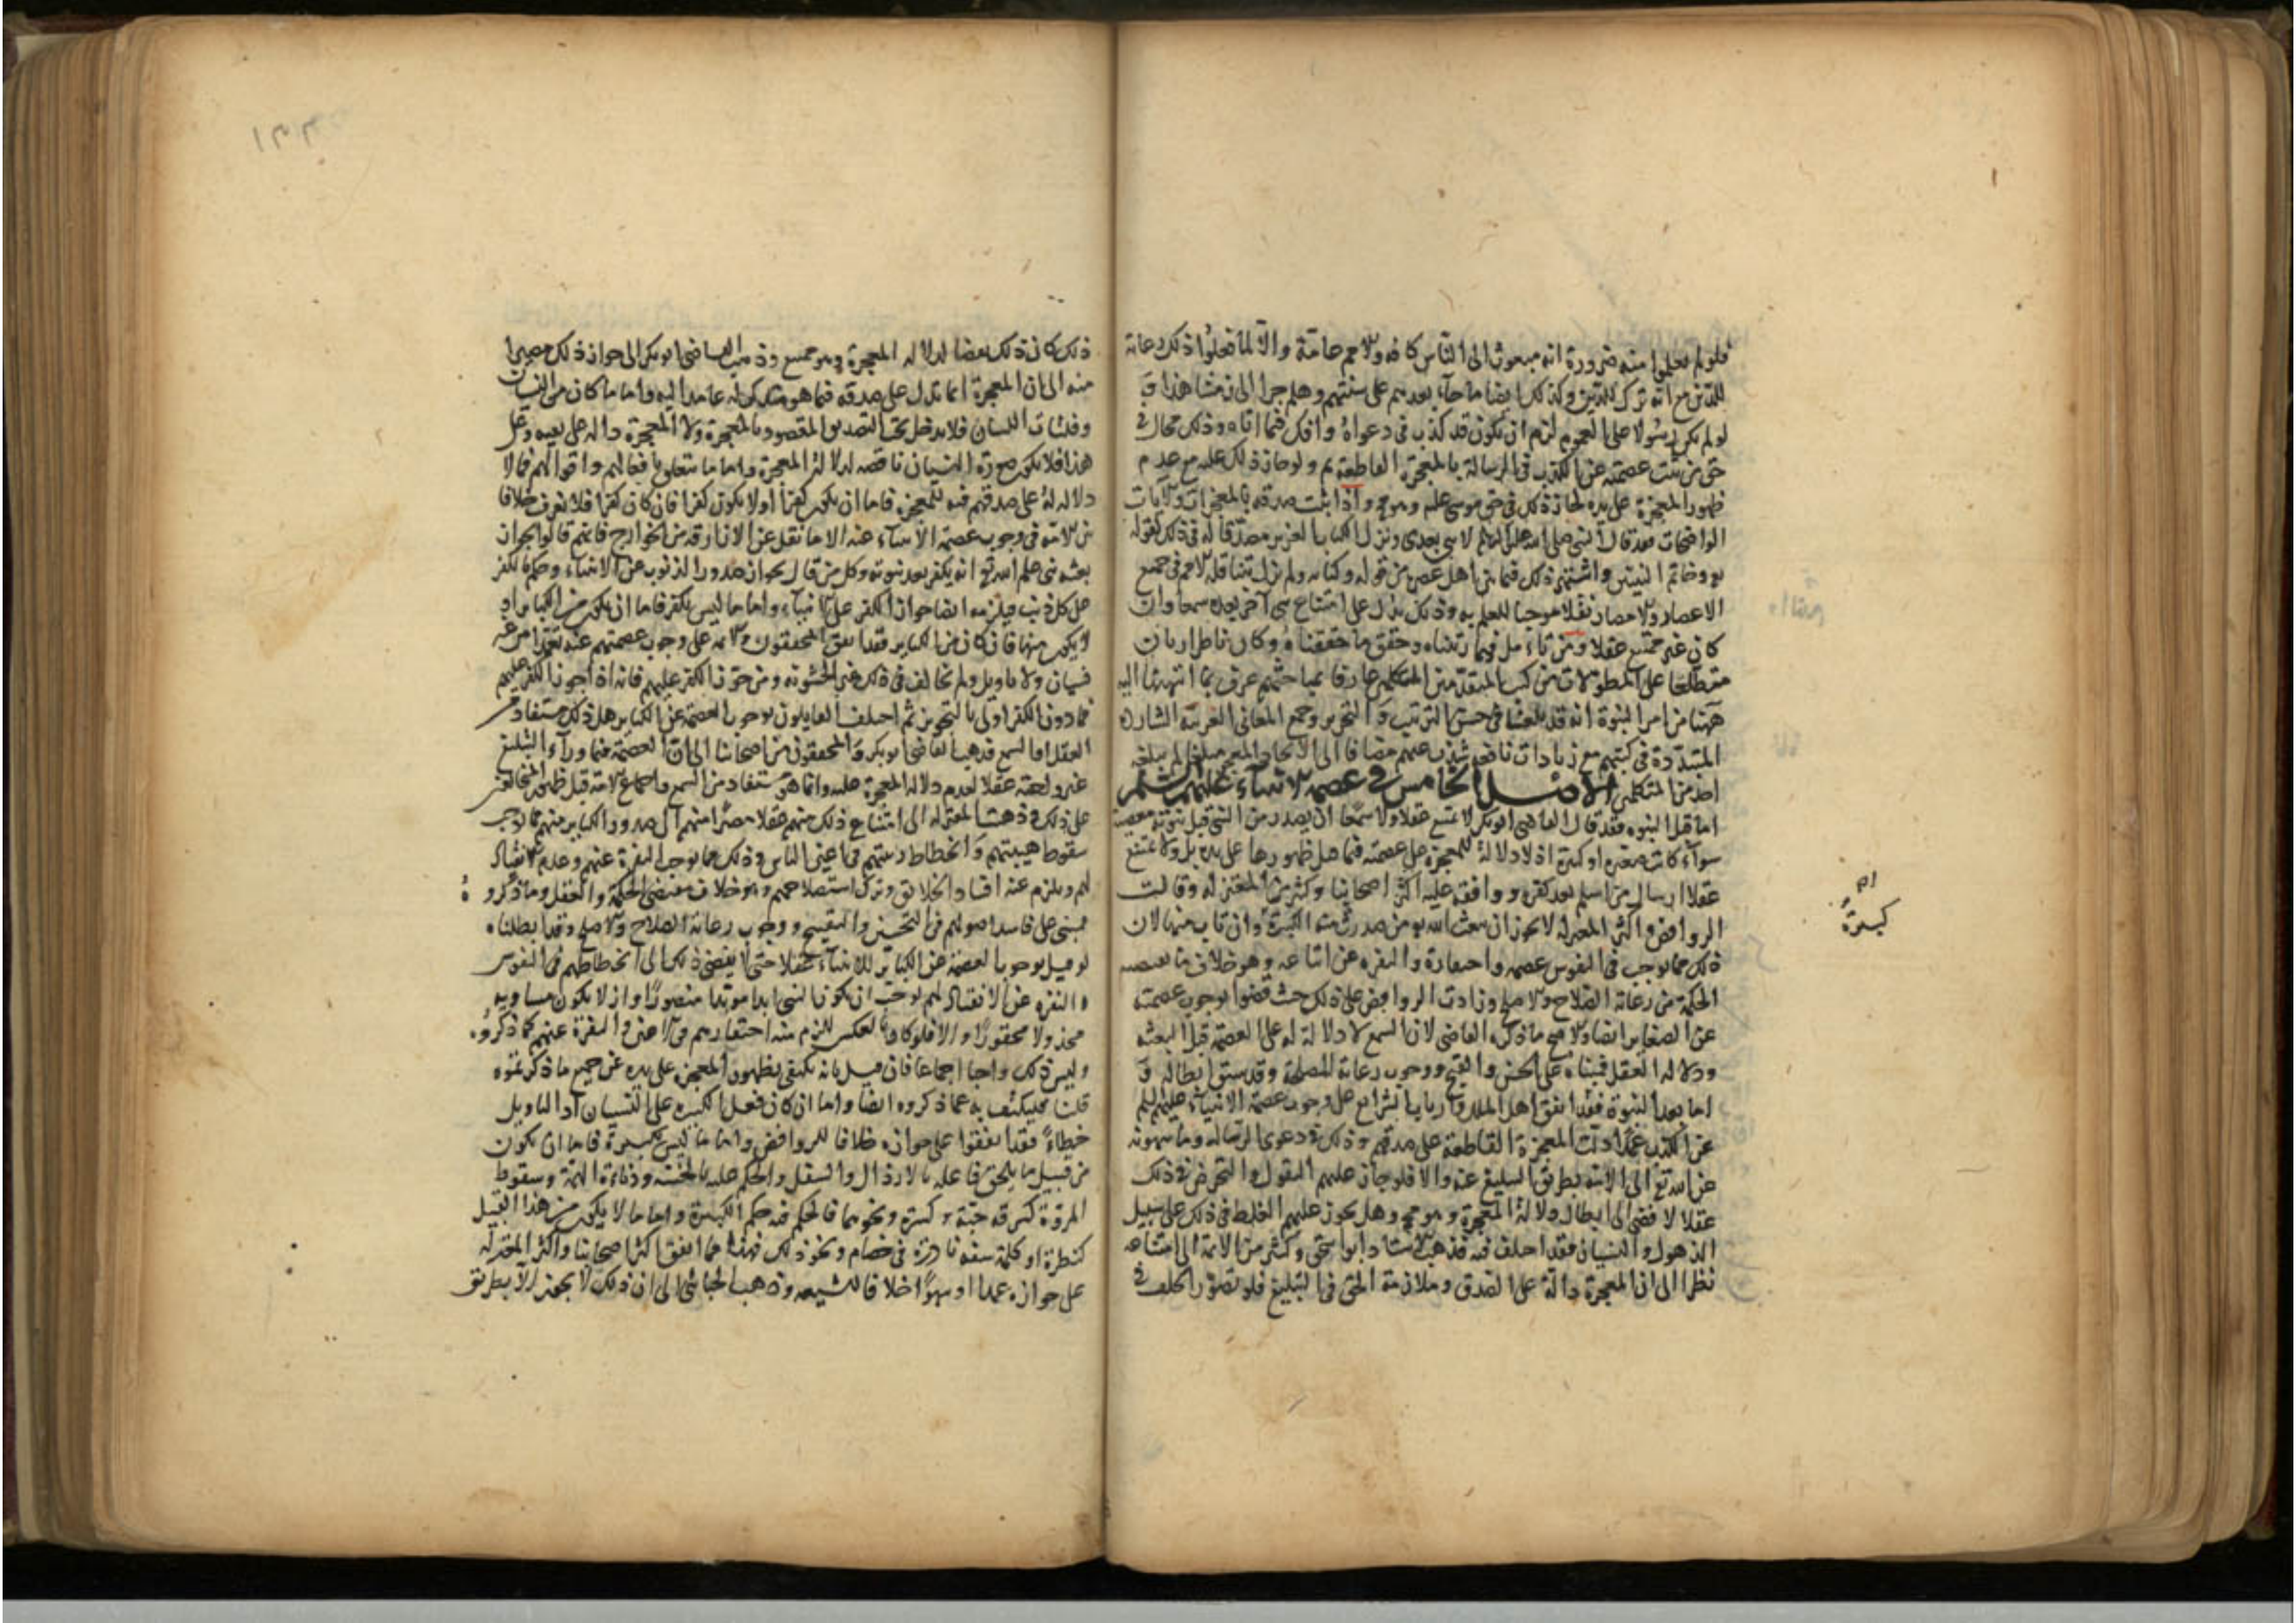 فلو لم يعلموا منه ضرورة انه مبعوث الى الناس كافه والامم عامة والا لما فعلوا ذلك رعاية
للدين مع انه ترك للدين وكذلك ايضا من جاء بعدهم على سنتهم وهلم جرا الى زمننا هذا و
لو لم يكن رسولا على العموم لزم ان يكون قد كذب فى دعواه وافك فيما اتاه وذلك محال فى
حق من ثبت عصمته عن الكذب فى الرسالة بالمعجزة القاطعة ثم ولو جاز ذلك عليه مع عدم
ظهور المعجزة على يده لجاز ذلك فى حق موسى عليه وهو مح واذا ثبت صدقه بالمعجزات والايات
الواضحات فقد قال النبى صلى الله عليه لا نبى بعدى ونزل الكتاب العزيز مصدقا له فى ذلك كقوله
وخاتم النبيين واشتهر ذلك فيما بين اهل عصره من قوله وكتابه ولم تزل تتناقله الامم فى جميع
الاعصار والامصار نقلا موجبا للعلم به وذلك يدل على امتناع نبى آخر بعده سمعا وان
كان غير ممتنع عقلا ومن تأمل فيما رتبناه وحقق ما حققناه وكان ناظرا ربان
مطلعا على المطولات من كتب المتقدمين المتكلمين عارفا بمباحثهم عرف بما انتهينا اليه
ههنا من امر النبوة انه قد بلغنا فى حسن الترتيب والتحرير وجمع المعانى الغريبة الشارده
المتبددة فى كتبهم مع زيادات شذت عنهم مضافا الى الايجاز مبلغا لم يبلغه
احد من المتكلمين الاصل الخامس فى عصمه الانبياء عليهم السلم
اما قبل النبوه فقد قال القاضى ابو بكر لا يمتنع عقلا ولا سمعا ان يصدر من النبى قبل نبوته معصية
سوآء كانت صغيره او كبيرة اذ لا دلالة للمعجزة على عصمته فيما قبل ظهورها على يده بل ولا يمتنع
عقلا ارسال من اسلم بعد كفره ووافقه عليه اكثر اصحابنا وكثير من المعتزله وقالت
الروافض واكثر المعتزله لا يجوز ان يبعث الله من صدرت منه الكبيرة وان تاب منها لان
ذلك مما يوجب فى النفوس واحتقاره والنفره عن اتباعه وهو خلاف ما تقتضيه
الحكمة من رعاية الصلاح والاصلح وزادت الروافض على ذلك حيث قضوا بوجوب عصمته
عن الصغاير ايضا والاصح ما ذكره القاضى لان السمع لا دلالة له على العصمة قبل البعثه
ودلاله العقل فمبناه على الحسن والقبح ووجوب رعاية المصلحة وقد سبق ابطاله و
اما بعد النبوة فقد اتفق اهل الملل وارباب الشرايع على وجوب عصمة الانبياء عليهم السلم
عن الكذب عمدا دلت المعجزة القاطعة على صدقهم وذلك فى دعوى الرساله وما ينهونه
عن الله تع الى الامة بطريق التبليغ عنه والا فلو جاز عليهم التقول والتخرص فى ذلك
عقلا لافضى الى ابطال دلالة المعجزة وهو مح وهل يجوز عليهم الغلط فى ذلك على سبيل
الذهول والنسيان فقد اختلف فيه فذهب الاستاد ابو اسحق وكثير من الائمة الى امتناعه
نظرا الى ان المعجزة دالة على الصدق وملازمة الحق فى التبليغ فلو تصور الخلف فى
ام
كبيرة
ذلك كان ذلك نقضا لدلاله المعجزة وهو ممتنع وذهب القاضى ابو بكر الى جواز ذلك مصيرا
منه الى ان المعجزة انما تدل على صدقه فيما هو متذكر له عامدا اليه واما ما كان من النسيان
وفلتات اللسان فلا يدخل تحت التصديق المقصود بالمعجزة ولا المعجزة دالة على نفيه وعلى
هذا فلا يكون النسيان ناقضه لدلالة المعجزة واما ما يتعلق بافعالهم واقوالهم فما لا
دلاله له على صدقهم فيه للمعجزه فاما ان يكون كفرا اولا يكون كفرا فان كان كفرا فلا نعرف خلافا
من الامة فى وجوب عصمة الانبياء عنه الا ما نقل عن الازارقه من الخوارج فانهم قالوا بجواز
بعثه نبى علم الله تع انه يكفر بعد نبوته وكل من قال بجواز صدور الذنوب عن الانبياء وحكم بالكفر
على كل ذنب فيلزمه ايضا جواز الكفر على الانبياء واما ما ليس بكفر فاما ان يكون من الكباير او
لا يكون منها فان كان من الكباير فقد اتفق المحققون والائمه على وجوب عصمتهم عنه تعمدا من غير
نسيان ولا تاويل ولم يخالف فى ذلك غير الحشويه ومن جوز الكفر عليهم فانه اذا جوز الكفر عليهم
فما دون الكفر اولى بالتجويز ثم اختلف القايلون بوجوب العصمة عن الكباير هل ذلك مستفاد من
العقل او السمع فذهب القاضى ابو بكر والمحققون من اصحابنا الى ان العصمة فيما ورآء التبليغ
غير واجبة عقلا لعدم دلاله المعجزة عليه وانما هو مستفاد من السمع واجماع الامة قبل ظهور المخالفين
على ذلك وذهبت المعتزله الى امتناع ذلك منهم عقلا مصيرا منهم الى ان صدور الكباير منهم مما يوجب
سقوط هيبتهم وانحطاط رتبتهم فى اعين الناس وذلك مما يوجب النفرة عنهم وعدم الانقياد
لهم ويلزم عنه افساد الخلائق وترك استصلاحهم وهو خلاف مقتضى الحكمة والعقل وما ذكروه
مبنى على فاسد اصولهم فى التحسين والتقبيح ووجوب رعاية الصلاح والاصلح وقد ابطلناه
لو قيل بوجوب العصمة عن الكباير للانبياء عقلا حتى لا يفضى ذلك الى انحطاطهم فى النفوس
والنفره عن الانقياد لهم لوجب ان يكون النبى ابدا مويدا منصورا وان لا يكون
مخذولا محقورا والا فلو كان بالعكس للزم منه احتقارهم فى الاعين والنفرة عنهم كما ذكروه
وليس ذلك واجبا اجماعا فان قيل بانه يكتفى بظهور المعجزه على يده عن جميع ما ذكرتموه
قلنا فليكتف به عما ذكروه ايضا واما ان كان فعل الكبيره على النسيان او التاويل
خطاء فقد اتفقوا على جوازه خلافا للروافض واما ما ليس بكبيرة فاما ان يكون
من قبيل ما يلحق فاعله بالارذال والسفل والحكم عليه بالخسة ودناءة الهمة وسقوط
المروة كسرقه حبة او كسرة ونحوهما فالحكم فيه حكم الكبيرة واما ما لا يكون من هذا القبيل
كنظرة او كلمة سفه نادرة فى خصام ونحو ذلك فهذا مما اتفق اكثر اصحابنا واكثر المعتزله
على جوازه عمدا او سهوا خلافا للشيعه وذهب الجبائى الى ان ذلك لا يجوز الا بطريق